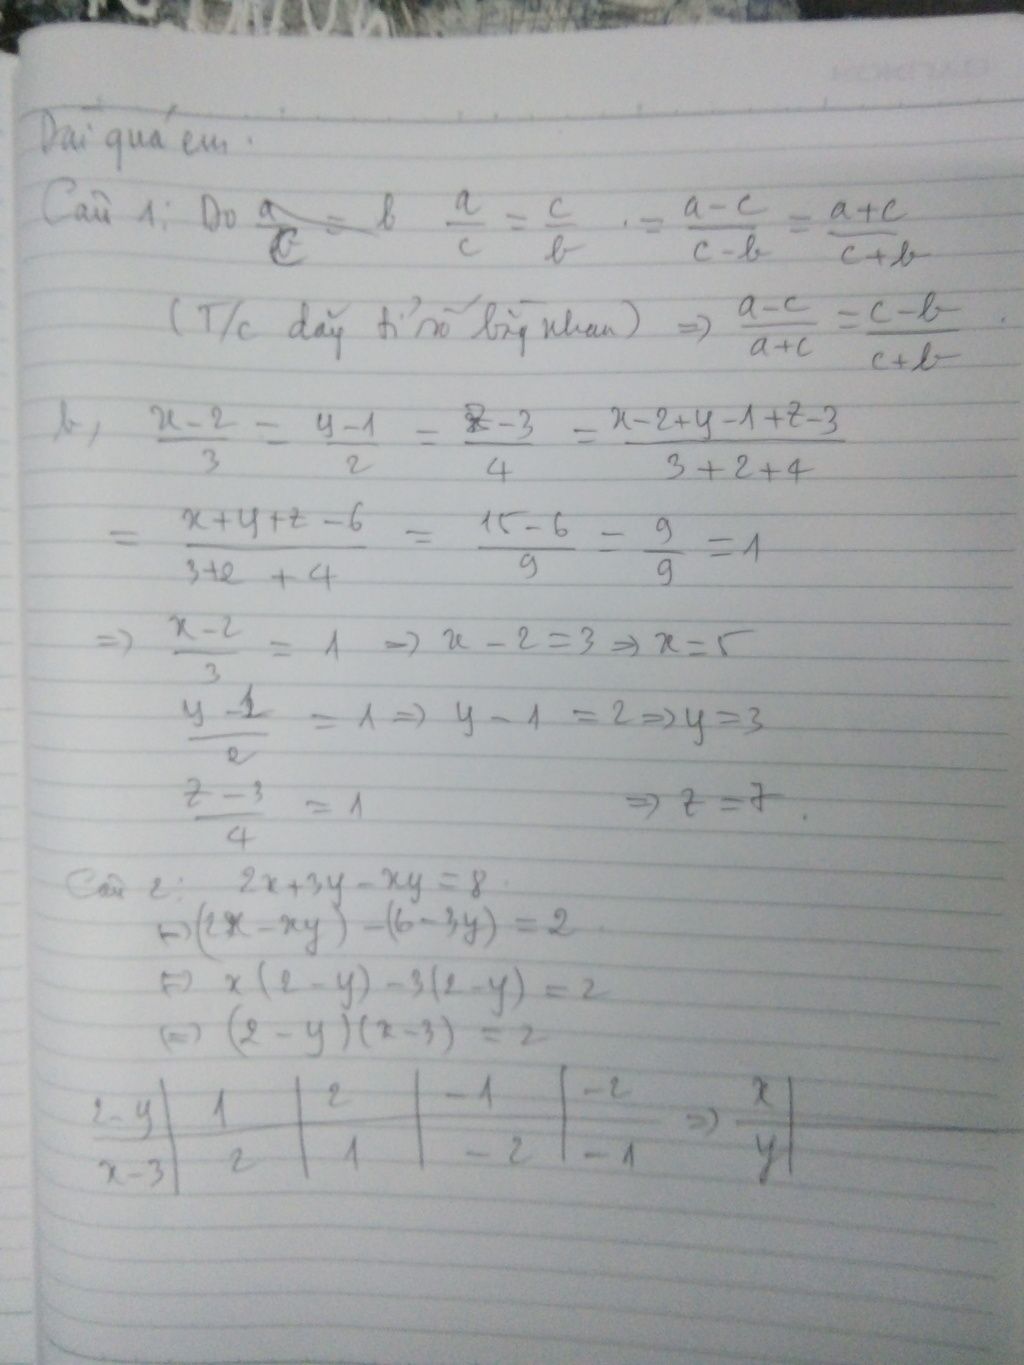 Dài quá em.
Câu 1: Do a/c = b a/c = c/b . = a-c/c-b = a+c/c+b
(T/c dãy tỉ số bằng nhau) => a-c/a+c = c-b/c+b .
b, x-2/3 = y-1/2 = z-3/4 = x-2+y-1+z-3/3+2+4
= x+y+z-6/3+2+4 = 15-6/9 = 9/9 = 1
=> x-2/3 = 1 => x-2=3 => x=5
y-1/2 = 1 => y-1 = 2 => y=3
z-3/4 = 1 => z=7.
Câu 2: 2x+3y-xy=8.
<=> (2x-xy)-(6-3y)=2.
<=> x(2-y)-3(2-y)=2
<=> (2-y)(x-3)=2
2-y | 1 | 2 | -1 | -2 => x |
x-3 | 2 | 1 | -2 | -1 y |